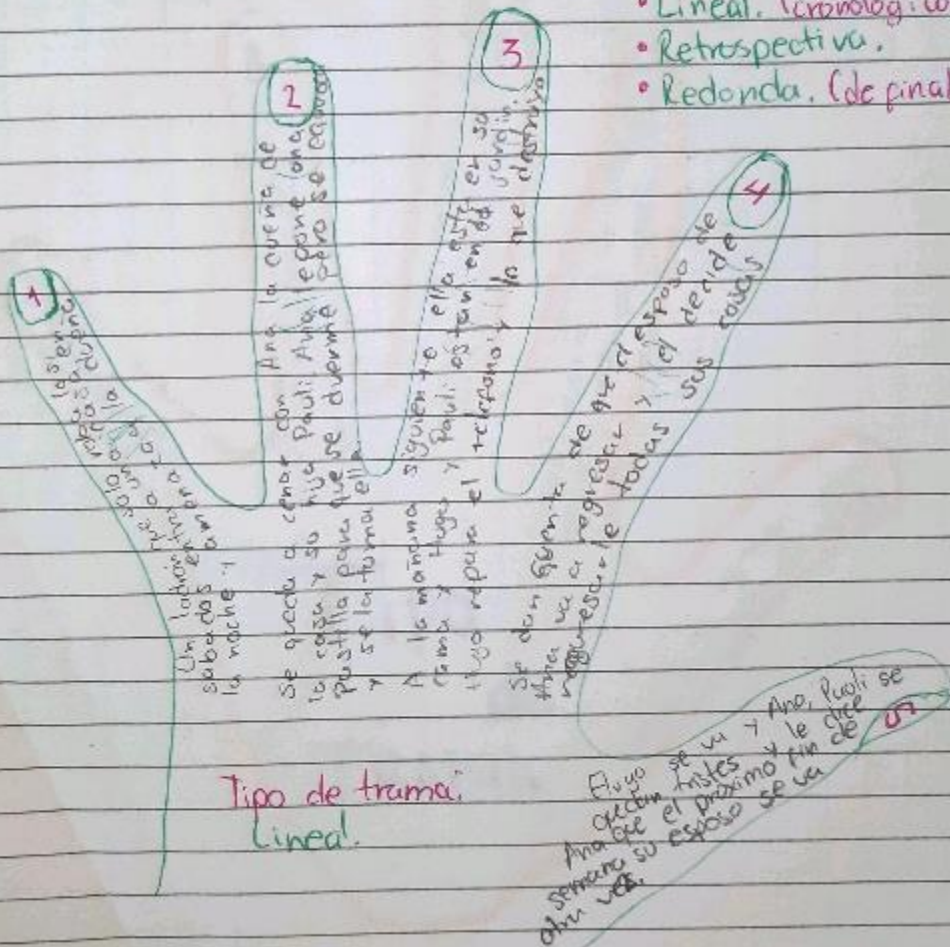 • Lineal. (cronológico
• Retrospectiva.
• Redonda. (de final
1
Un ladrón que solo roba los
sabados entra a una casa en
la noche y amenaza a la dueña
2
Se queda a cenar con Ana la dueña de
la casa y su hija Pauli. Ana le pone una
pastilla para que se duerma pero se
y se la toma ella
3
A la mañana siguiente ella esta en su
cama y Hugo y Pauli estan en el jardin,
Hugo repara el telefono y lo que destruyo
4
Se dan cuenta de que el esposo de
Ana va a regresar y el decide
regresarle todas sus cosas
5
Hugo se va y Ana, Pauli se
quedan tristes y le dice
Ana que el próximo fin de
semana su esposo se va
otra vez.
Tipo de trama:
Lineal.